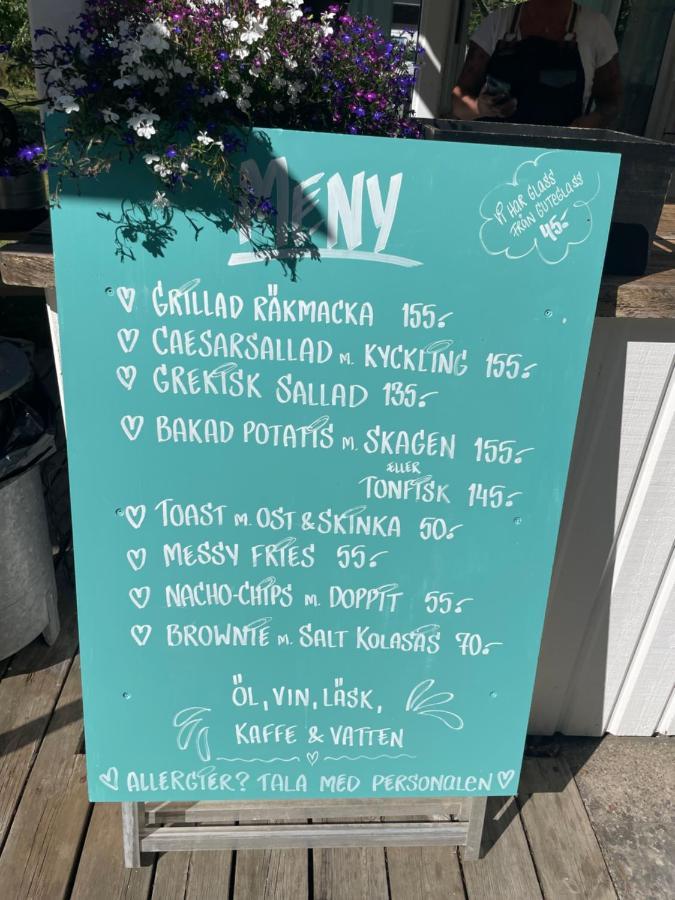 MENY
VI HAR GLASS
FRÅN GUTEGLASS!
45:-
♡ GRILLAD RÄKMACKA 155:-
♡ CAESARSALLAD M. KYCKLING 155:-
♡ GREKISK SALLAD 135:-
♡ BAKAD POTATIS M. SKAGEN 155:-
ELLER
TONFISK 145:-
♡ TOAST M. OST & SKINKA 50:-
♡ MESSY FRIES 55:-
♡ NACHO-CHIPS M. DOPPIT 55:-
♡ BROWNIE M. SALT KOLASÅS 70:-
ÖL, VIN, LÄSK,
KAFFE & VATTEN
♡ ALLERGIER? TALA MED PERSONALEN ♡